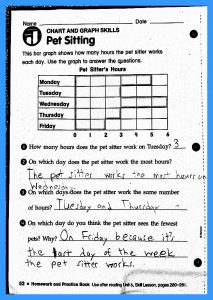 Name Date
CHART AND GRAPH SKILLS
Pet Sitting
This bar graph shows how many hours the pet sitter works
each day. Use the graph to answer the questions.
Pet Sitter's Hours
Monday
Tuesday
Wednesday
Thursday
Friday
0 1 2 3 4 5 6
1 How many hours does the pet sitter work on Tuesday? 3
2 On which day does the pet sitter work the most hours?
The pet sitter works the most hours on
Wednesday.
3 On which days does the pet sitter work the same number
of hours? Tuesday and Thursday
4 On which day do you think the pet sitter sees the fewest
pets? Why? On Friday because it's
the last day of the week
the pet sitter works.
52 • Homework and Practice Book Use after reading Skill Lesson, pages 280-281.